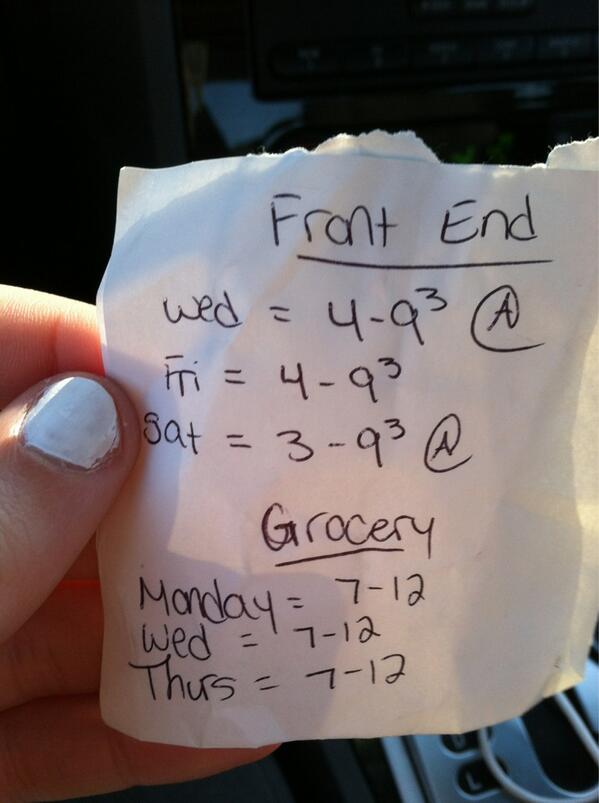 Front End
Wed = 4-9³ Ⓐ
Fri = 4-9³
Sat = 3-9³ Ⓐ
Grocery
Monday = 7-12
Wed = 7-12
Thurs = 7-12